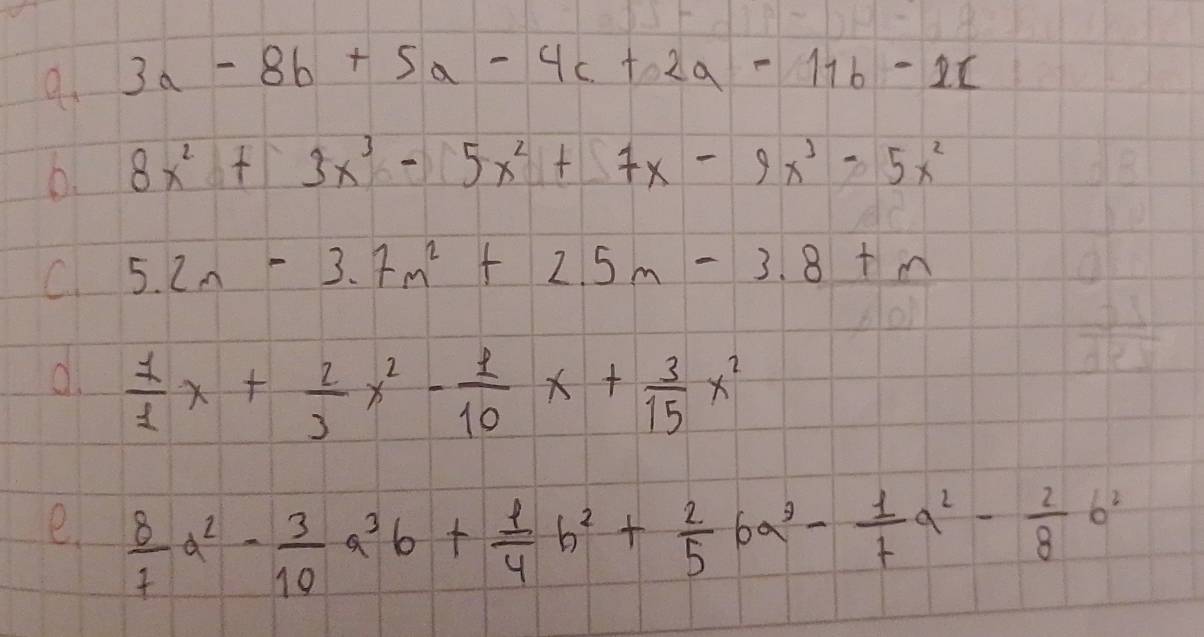 a. 3a - 8b + 5a - 4c + 2a - 11b - 2c
b. 8x² + 3x³ - 5x² + 7x - 9x³ - 5x²
c. 5.2m - 3.7m² + 2.5m - 3.8 + m
d. 1/2 x + 2/3 x² - 1/10 x + 3/15 x²
e. 8/7 a² - 3/10 a³b + 1/4 b² + 2/5 ba³ - 1/7 a² - 2/8 b²